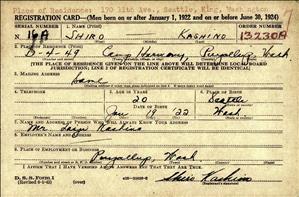 Place of Residence: 190 11th Ave., Seattle, King, Washington
REGISTRATION CARD—(Men born on or after January 1, 1922 and on or before June 30, 1924)
No. 16A
SHIRO KASHINO 13230A
2. PLACE OF RESIDENCE (Print)
D-4-49 Camp Harmony, Puyallup, Wash
[THE PLACE OF RESIDENCE GIVEN ON THE LINE ABOVE WILL DETERMINE LOCAL BOARD
JURISDICTION; LINE 2 OF REGISTRATION CERTIFICATE WILL BE IDENTICAL]
3. MAILING ADDRESS
Same
4. TELEPHONE
5. AGE IN YEARS
20
Seattle
Jan '22
Wash
7. NAME AND ADDRESS OF PERSON WHO WILL ALWAYS KNOW YOUR ADDRESS
Mr. Kashino
8. EMPLOYER'S NAME AND ADDRESS
Puyallup, Wash
9. PLACE OF EMPLOYMENT OR BUSINESS
I AFFIRM THAT I HAVE VERIFIED ABOVE ANSWERS AND THAT THEY ARE TRUE.
D. S. S. Form 1
Shiro Kashino